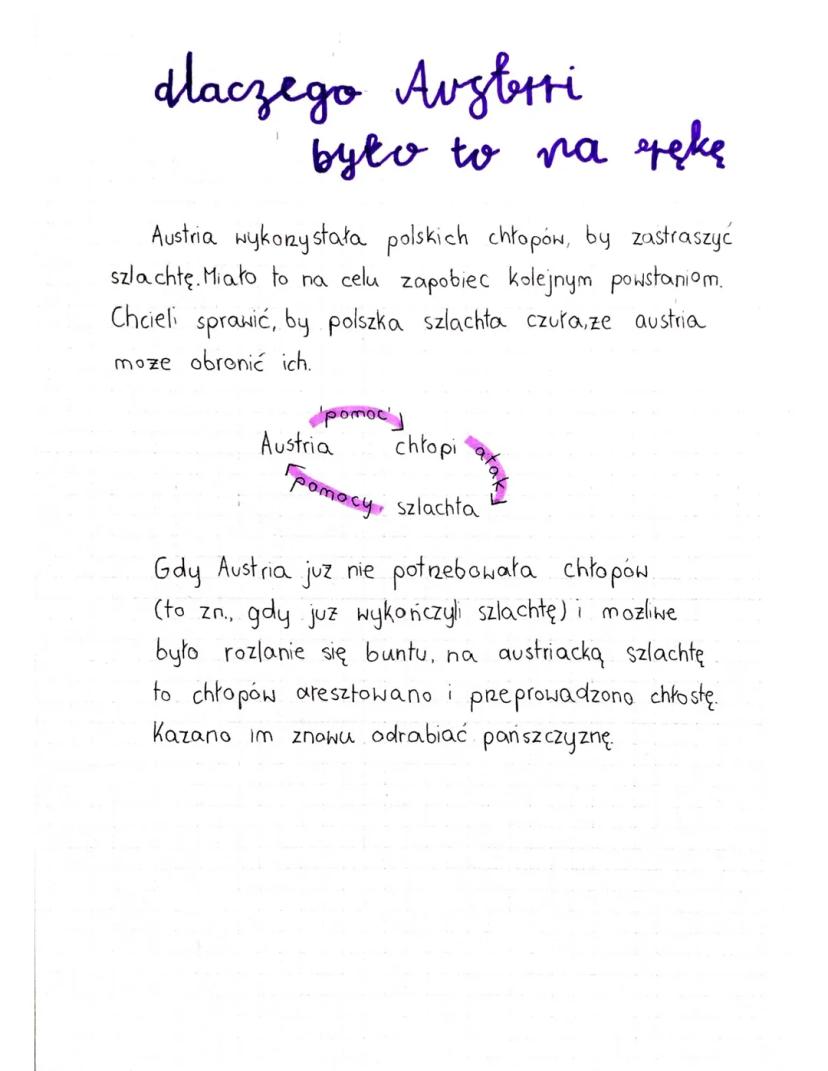 dlaczego Austrii
było to na rękę
Austria wykorzystała polskich chłopów, by zastraszyć
szlachtę. Miało to na celu zapobiec kolejnym powstaniom.
Chcieli sprawić, by polszka szlachta czuła, że austria
może obronić ich.
pomoc
Austria chłopi
atak
pomocy szlachta
Gdy Austria już nie potrzebowała chłopów
(to zn., gdy już wykończyli szlachtę) i możliwe
było rozlanie się buntu, na austriacką szlachtę
to chłopów aresztowano i przeprowadzono chłostę.
Kazano im znowu odrabiać pańszczyznę.